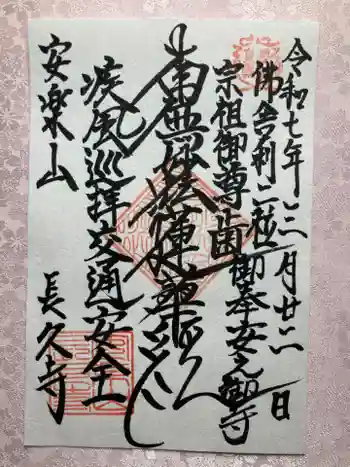 令和七年三月廿二日
佛舎利二粒
宗祖御尊歯御奉安之御寺
南無妙法蓮華経
疾風巡拝交通安全
安楽山
長久寺